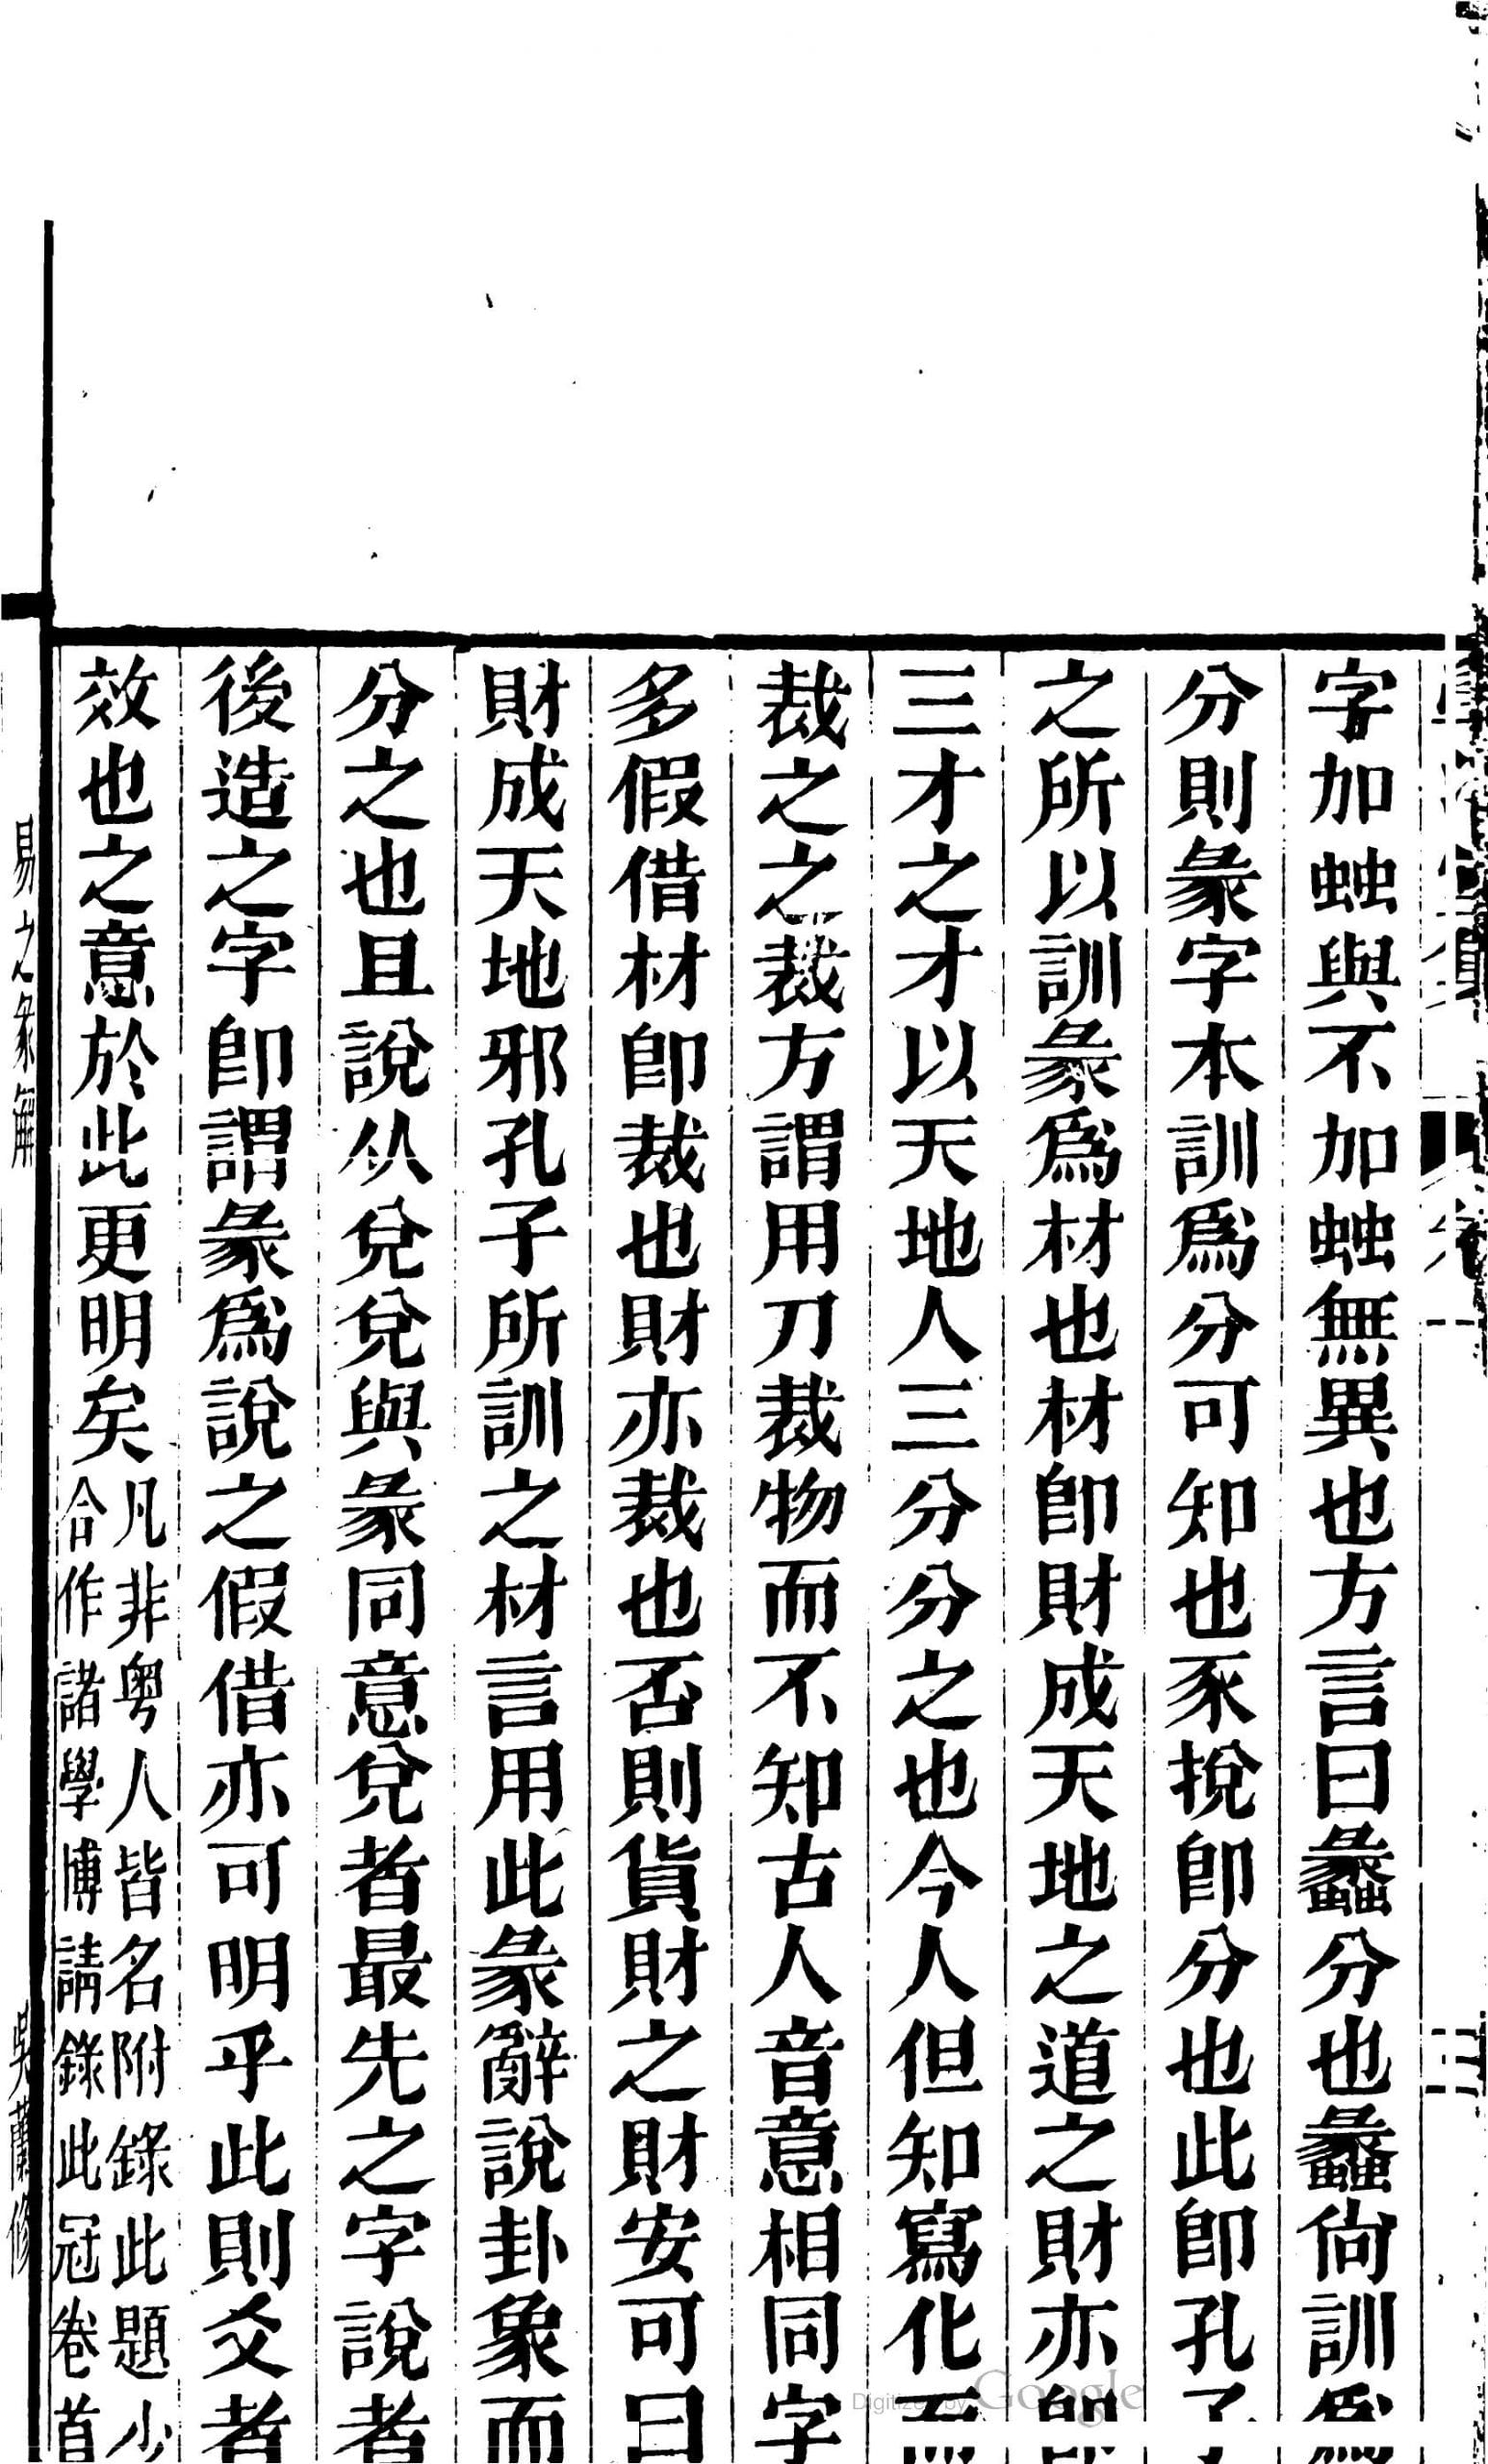 字加䖵與不加䖵無異也方言曰蠡分也蠡尙訓爲
分則彖字本訓爲分可知也豕挩卽分也此卽孔子
之所以訓彖爲材也材卽財成天地之道之財亦卽
三才之才以天地人三分分之也今人但知寫化而
裁之之裁方謂用刀裁物而不知古人音意相同字
多假借材卽裁也財亦裁也否則貨財之財安可曰
財成天地邪孔子所訓之材言用此彖辭說卦象而
分之也且說从兌兌與彖同意兌者最先之字說者
後造之字卽謂彖爲說之假借亦可明乎此則爻者
效也之意於此更明矣
凡非粤人皆名附錄此題少
合作諸學博請錄此冠卷首
易之彖解
吳蘭修
Digitized by Google